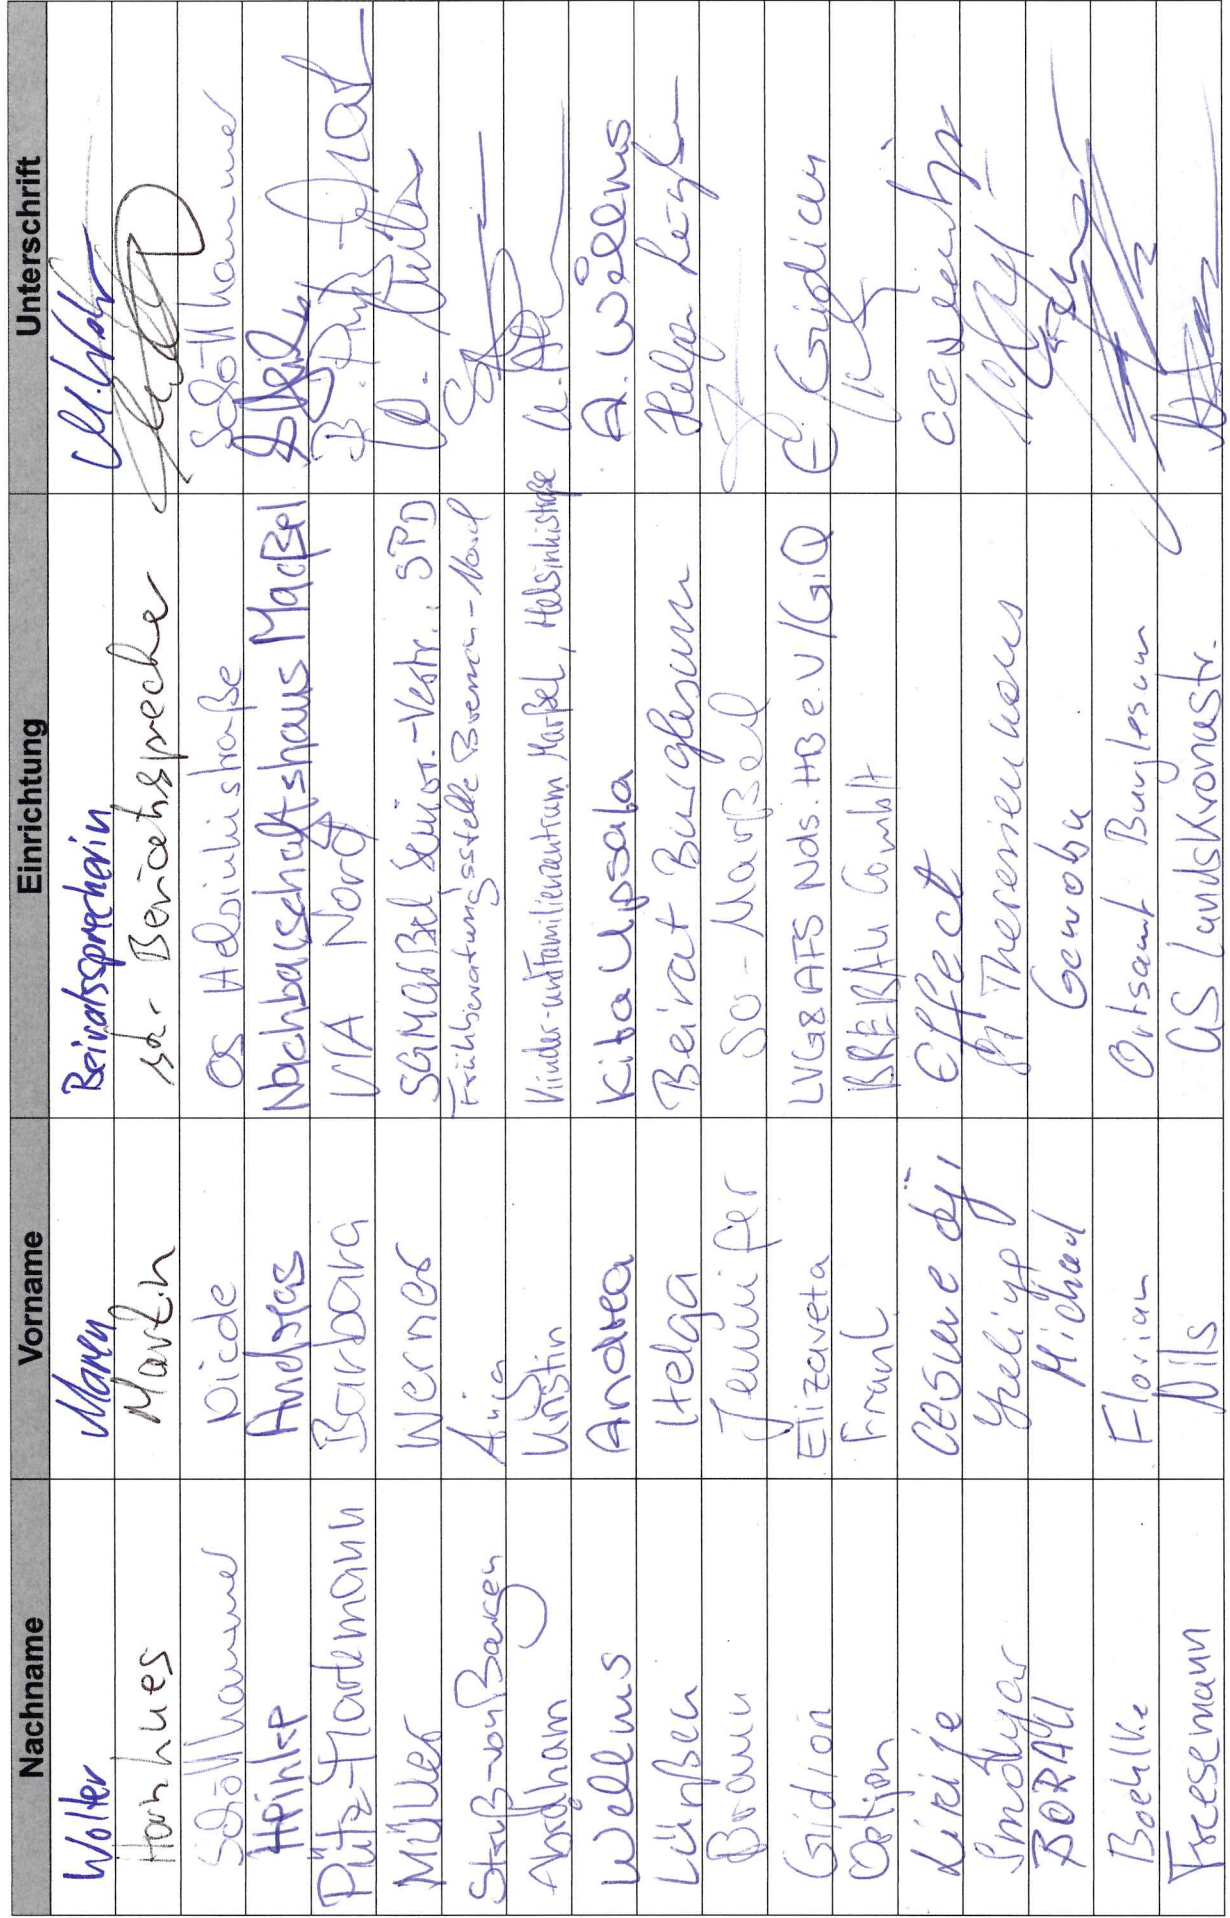 Nachname Vorname Einrichtung Unterschrift
Wolter Maren Beiratssprecherin M. Wolter
Hornhues Martin stv. Beiratssprecher
Schöllhammer Nicole OS Helsinkistraße Schöllhammer
Heinke Andreas Nachbarschaftshaus Marßel
Pütz-Markmann Barbara VIA Nord
Müller Werner SG Marßel Senior.-Vertr., SPD W. Müller
Struß-von Bargen Anja Frühberatungsstelle Bremen-Nord
Abraham Kristin Kinder- und Familienzentrum Marßel, Helsinkistraße
Wellms Andrea Kita Upsala A. Wellms
Lürßen Helga Beirat Burglesum Helga Lürßen
Braun Jennifer SO-Marßel
Gidion Elizaveta LVG&AFS Nds. HB e.V / GiQ E. Gidion
Frank BREBAU GmbH
Effect
St. Theresienhaus
BORAYI Michael Gewoba
Boehlke Florian Ortsamt Burglesum
Freesemann Nils GS Landskronastr.